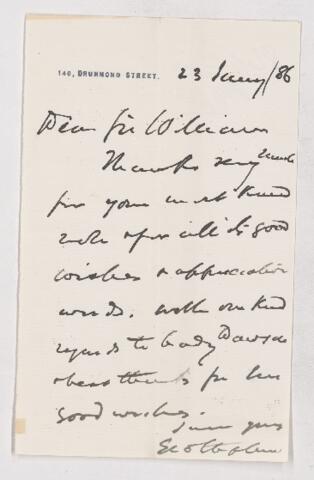 140, DRUMMOND STREET. 23 Jany/86
Dear Sir William
Thanks very much
for your most kind
note & for all its good
wishes & appreciative
words. With our kind
regards to Lady Dawson
& best thanks for her
good wishes.